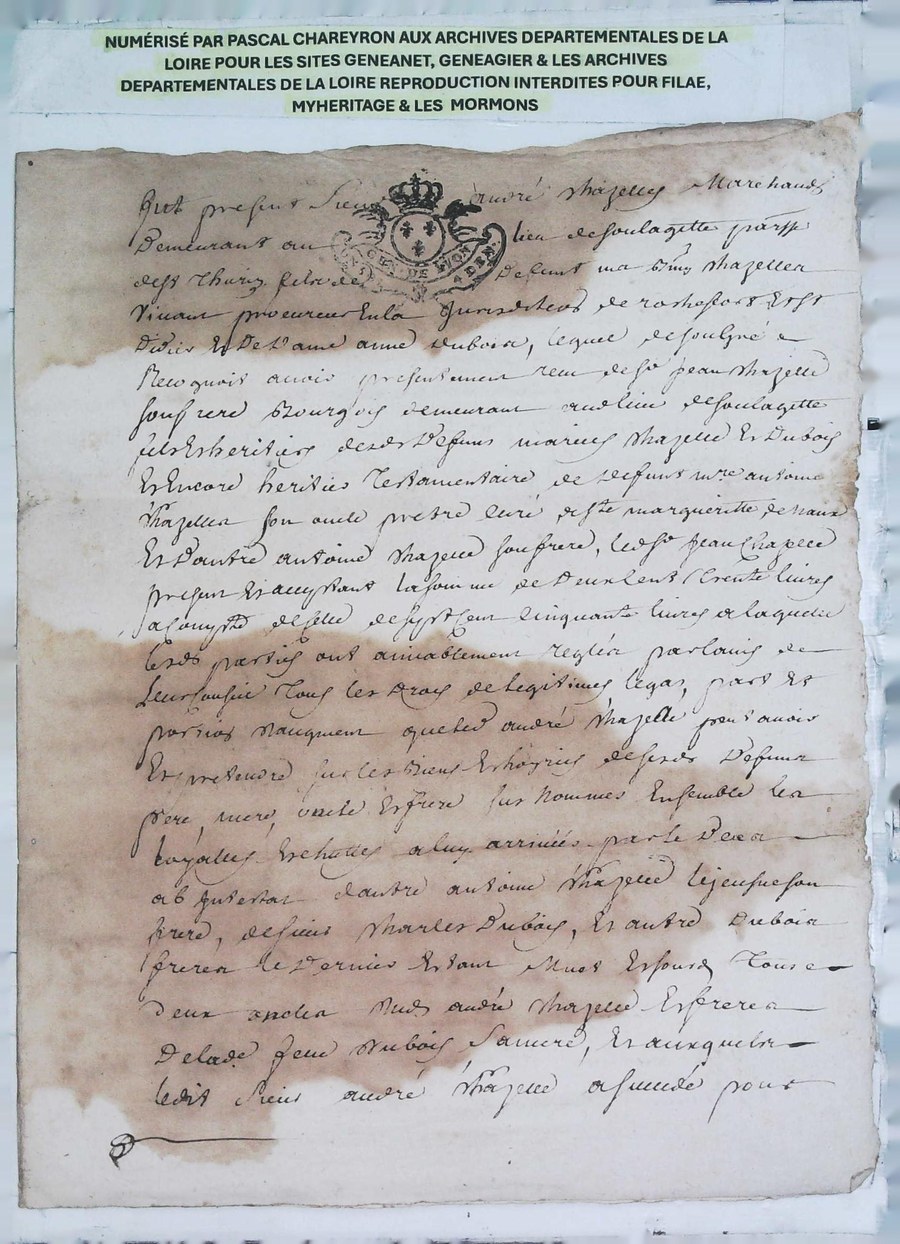 NUMÉRISÉ PAR PASCAL CHAREYRON AUX ARCHIVES DEPARTEMENTALES DE LA
LOIRE POUR LES SITES GENEANET, GENEAGIER & LES ARCHIVES
DEPARTEMENTALES DE LA LOIRE REPRODUCTION INTERDITES POUR FILAE,
MYHERITAGE & LES MORMONS
fut present Sieur andré Chazelles Marchand
GEN. DE LYON
Demeurant au lieu de soulagette
de st Thurin fils de Defunt Chazelles
Vivant procureur En la Jurisdition de rochefort Et st
Didier Et De anne Dubois, lequel de son gré
Recognoit avoir presentement receu de sr Jean Chazelle
son frere Bourgois demeurant audlieu de soulagette
fils Et heritier desds Defuns Chazelle Et Dubois
Et Encore heritier Testamentaire de Defunt mre antoine
Chazelles son oncle pretre curé de ste margueritte de naux
Et D'autre antoine Chazelle son frere, ledsr Jean Chazelle
present Et acceptant la somme de Deux Cent Trente livres
a Compte de celle de sept Cent Cinquante livres a laquelle
lesds parties ont amiablement reglés par lavis de
Leur Conseil Tous les Drois de legitimes legat, part Et
portion augment que led andré Chazelle peut avoir
Et pretendre sur les Biens Et hoyries desds Defuns
pere, mere, oncle Et frere sus Nommés Ensemble les
Et chuttes a luy arrivées par le Deces
ab Intestat d'autre antoine Chazelle le jeune son
frere, de sieur Charles Dubois, Et autre Dubois
freres le Dernier Estant Muet Et sourd Tous
Deux oncles dud andré Chazelle Et freres
De lade feue Dubois Sa mere, Et auxquels
ledit Sieur andré Chazelle a succedé pour